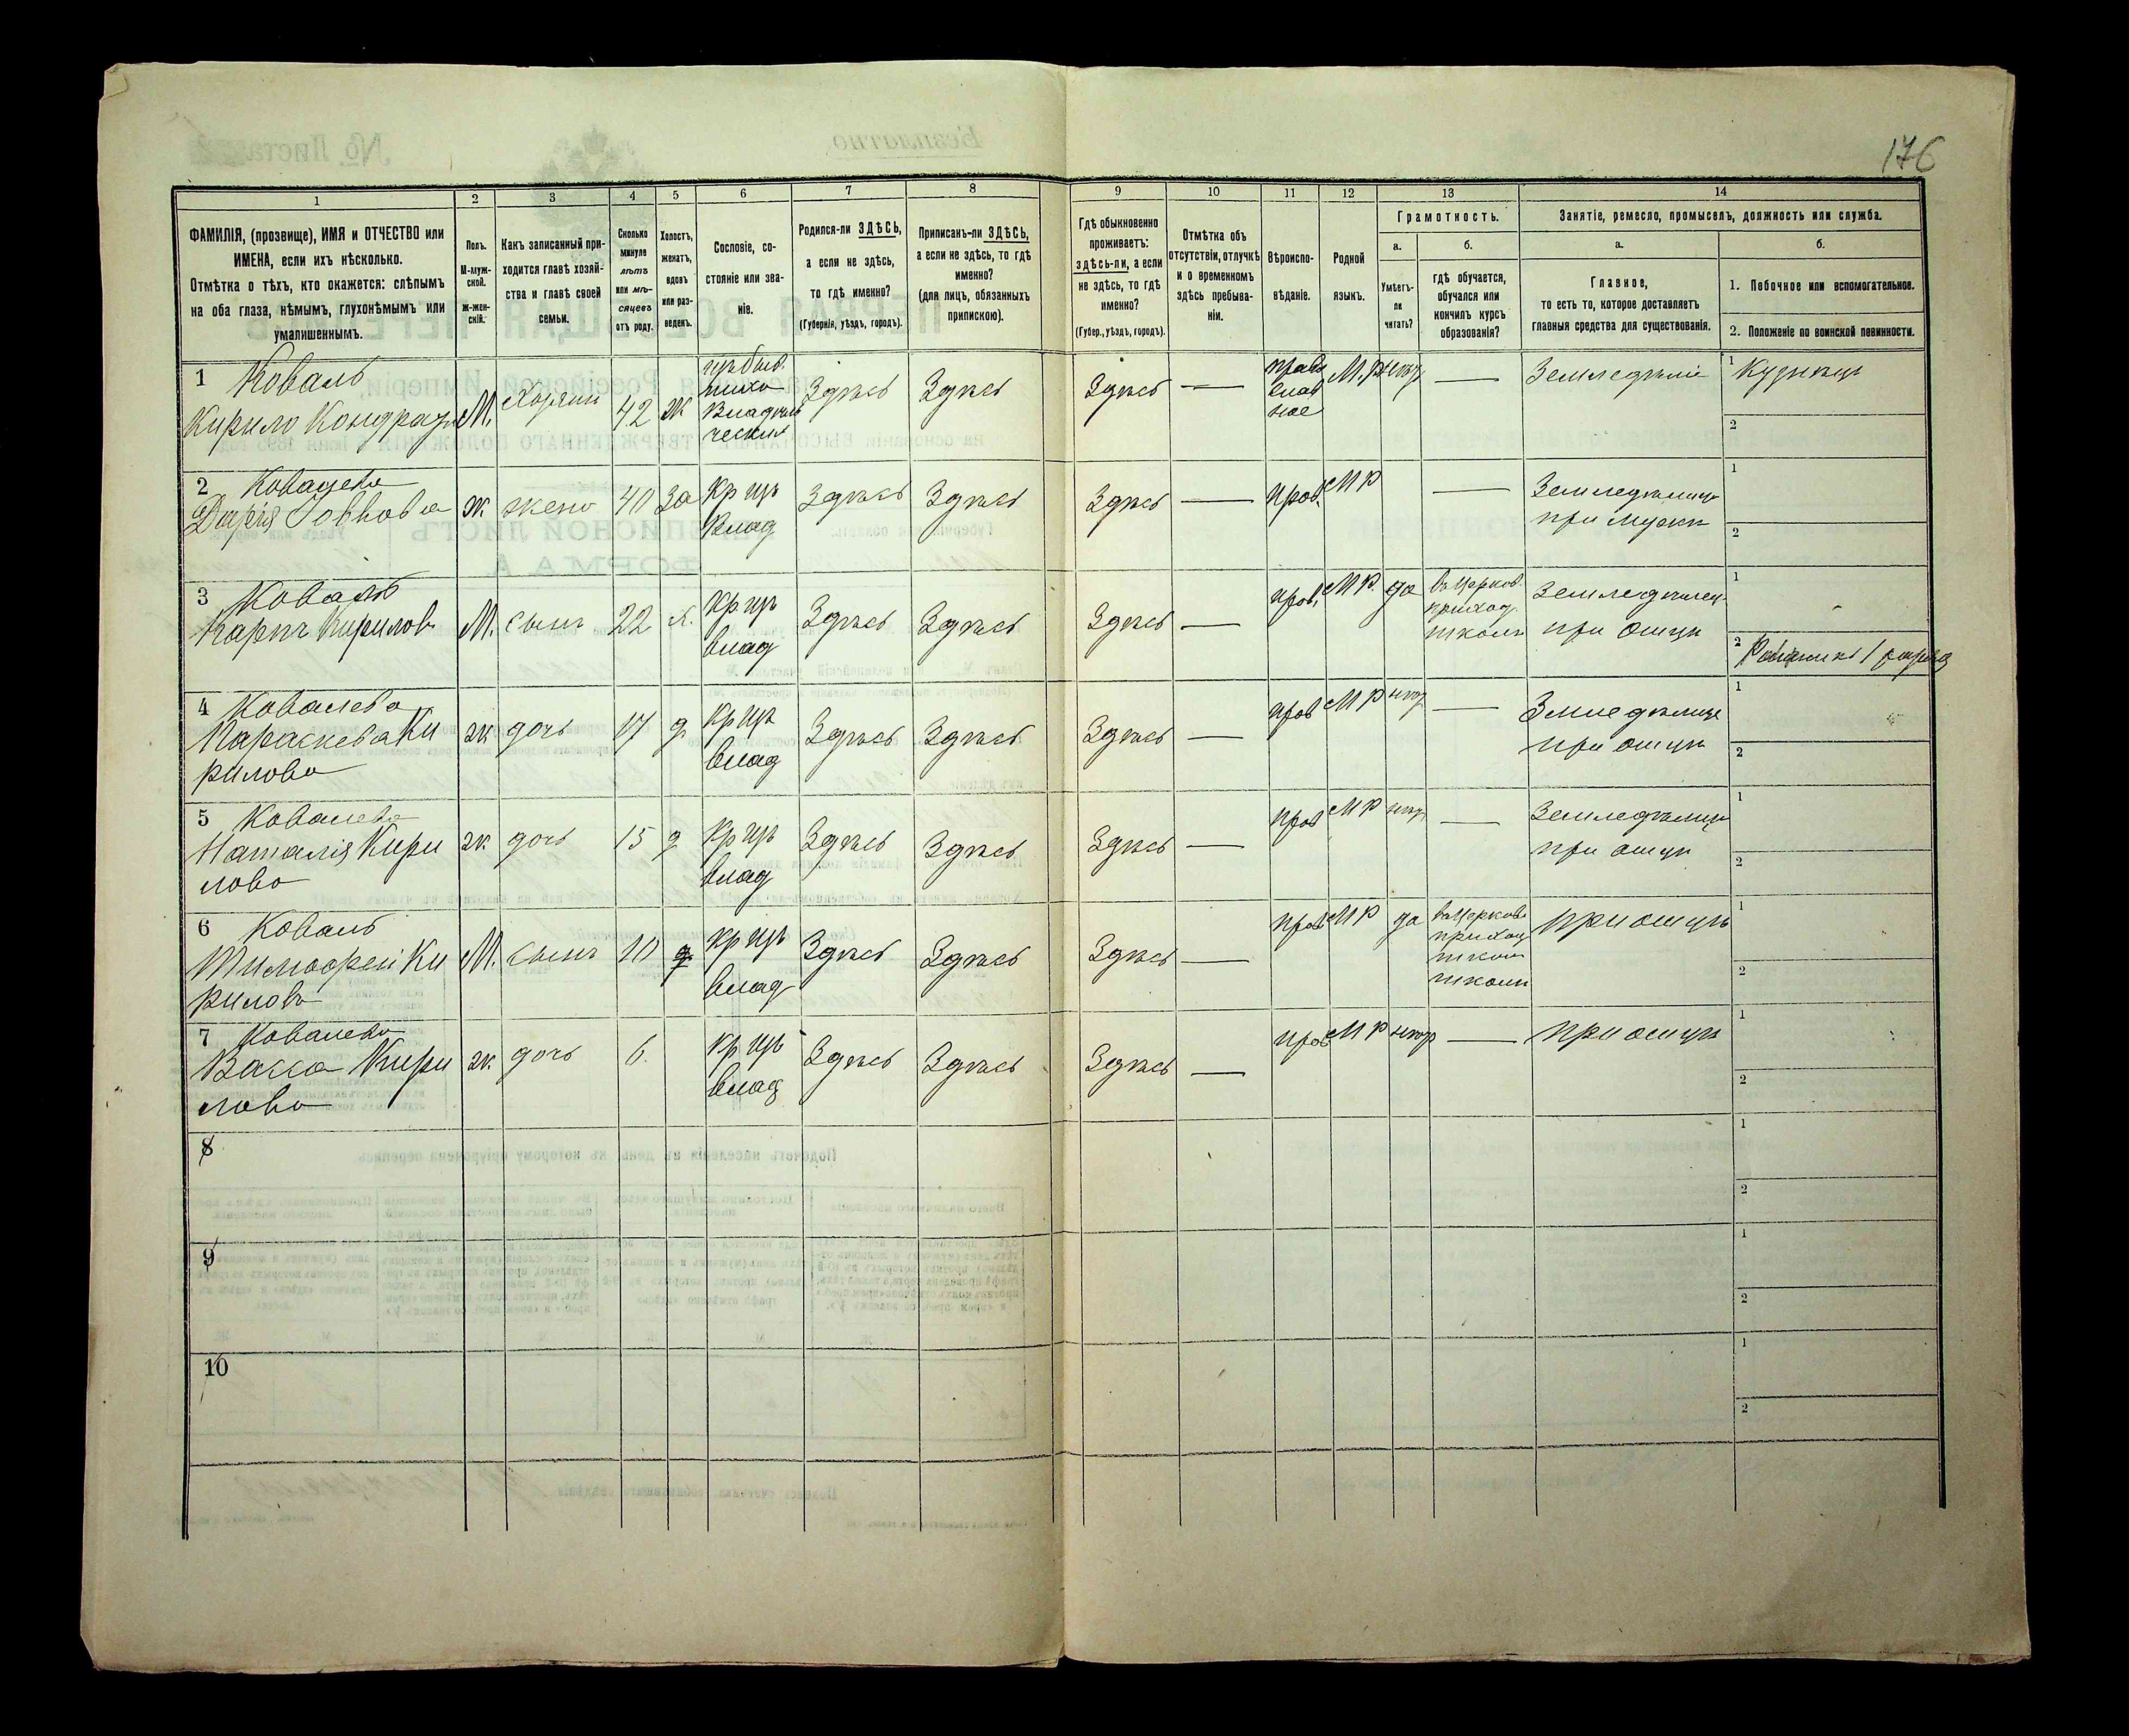 176
1 2 3 4 5 6 7 8 9 10 11 12 13 14
ФАМИЛІЯ, (прозвище), ИМЯ и ОТЧЕСТВО или
ИМЕНА, если ихъ нѣсколько.
Отмѣтка о тѣхъ, кто окажется: слѣпымъ
на оба глаза, нѣмымъ, глухонѣмымъ или
умалишеннымъ.
Полъ.
М-муж-
ской.
Ж-жен-
скій.
Какъ записанный при-
ходится главѣ хозяй-
ства и главѣ своей
семьи.
Сколько
минуло
лѣтъ
или мѣ-
сяцевъ
отъ роду.
Холостъ,
женатъ,
вдовъ
или раз-
веденъ.
Сословіе, со-
стояніе или зва-
ніе.
Родился-ли ЗДѢСЬ,
а если не здѣсь,
то гдѣ именно?
(Губернія, уѣздъ, городъ).
Приписанъ-ли ЗДѢСЬ,
а если не здѣсь, то гдѣ
именно?
(для лицъ, обязанныхъ
припискою).
Гдѣ обыкновенно
проживаетъ:
здѣсь-ли, а если
не здѣсь, то гдѣ
именно?
(Губер., уѣздъ, городъ).
Отмѣтка объ
отсутствіи, отлучкѣ
и о временномъ
здѣсь пребыва-
ніи.
Вѣроиспо-
вѣданіе.
Родной
языкъ.
Грамотность.
а.
Умѣетъ-
ли
читать?
б.
гдѣ обучается,
обучался или
кончилъ курсъ
образованія?
Занятіе, ремесло, промыселъ, должность или служба.
а.
Главное,
то есть то, которое доставляетъ
главныя средства для существованія.
б.
1. Побочное или вспомогательное.
2. Положеніе по воинской повинности.
1 Коваль
Кирило Кондрат М. Хозяин 42 Ж
Владѣль
ческих
Здѣсь Здѣсь Здѣсь —
право
слав
ное
М.р нѣт — Земледѣліе
1 Кузнецъ
2
2 Ковалева
Дарія Іовнова ж жена 40 За Кр цъ
Влад
Здѣсь Здѣсь Здѣсь — прав. М Р —
Земледѣлица
при мужи
1
2
3 Коваль
Карпъ Кирилов М. сынъ 22 х. Кр цъ
влад
Здѣсь Здѣсь Здѣсь — прав. М Р. да
въ Церков.
приход.
школѣ
Земледѣлец
при отцѣ
1
2 Ратникъ 1 разряд
4 Ковалева
Параскева Ки
рилова
ж. дочь 17 д Кр цъ
влад
Здѣсь Здѣсь Здѣсь — прав М Р нѣт —
Змледѣлица
при отцѣ
1
2
5 Ковалева
Наталія Кири
лова
ж. дочь 15 д Кр цъ
влад
Здѣсь Здѣсь Здѣсь — прав М Р нѣт —
Земледѣлица
при отцѣ
1
2
6 Коваль
Тимофей Ки
рилов
М. сынъ 10 Кр цъ
влад
Здѣсь Здѣсь Здѣсь — прав М Р да
въ Церков
приход
школ
школи
при отцѣ
1
2
7 Ковалева
Васса Кири
лова
ж. дочь 6. Кр цъ
влад
Здѣсь Здѣсь Здѣсь — прав М Р нѣт — при отцѣ
1
2
8
1
2
9
1
2
10
1
2